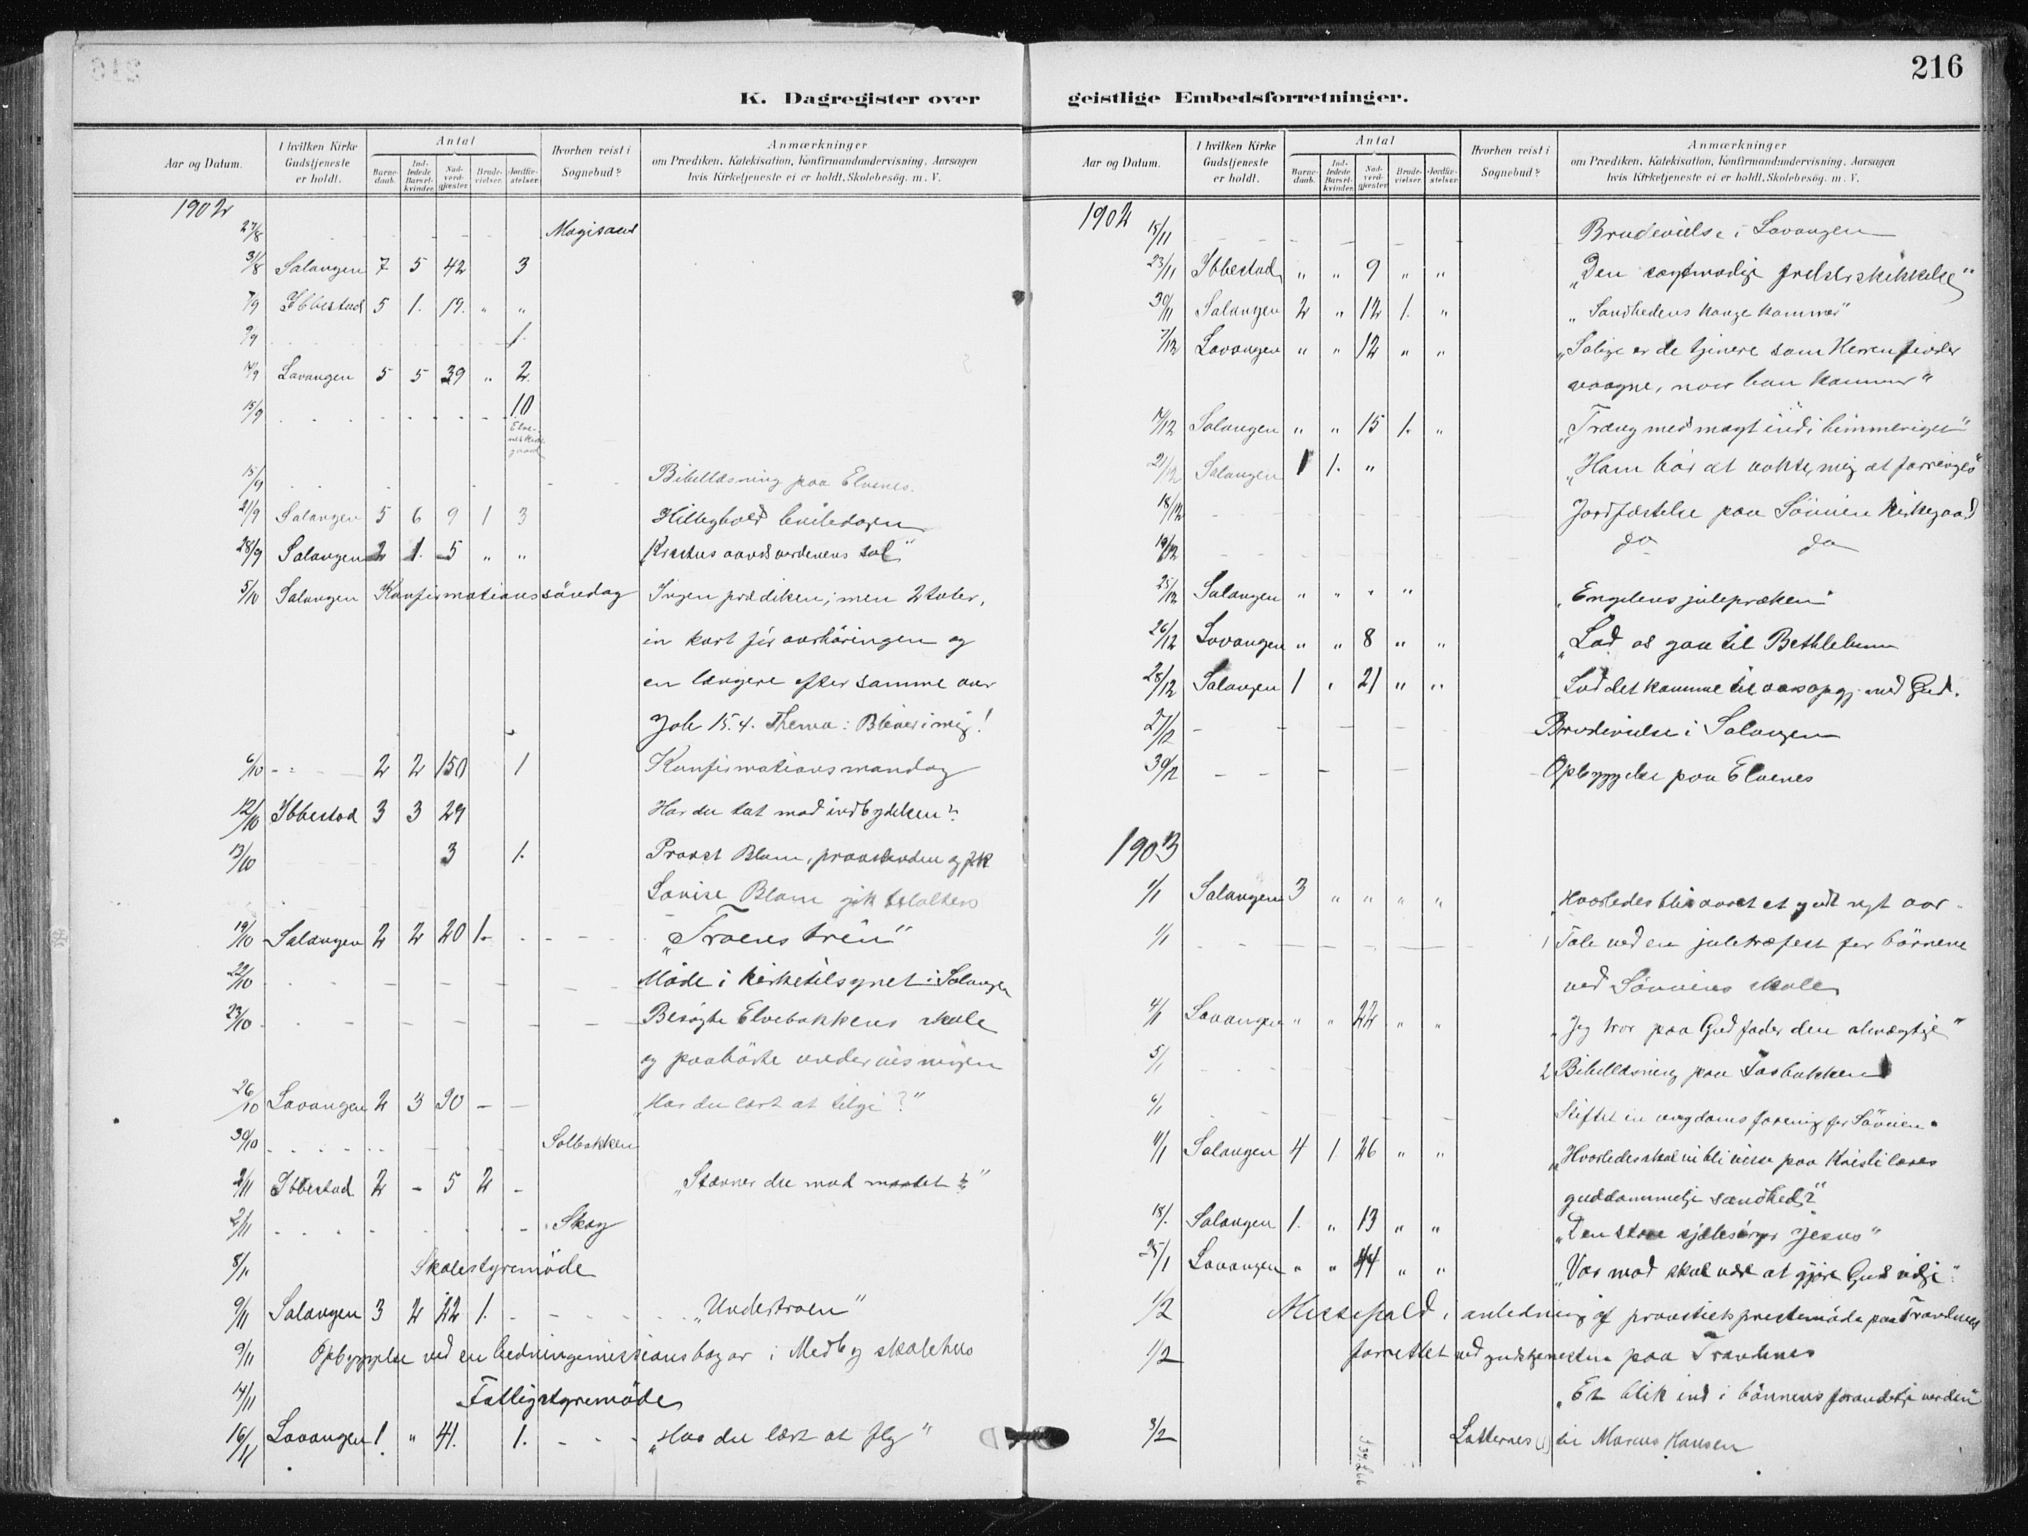 216
K. Dagregister over geistlige Embedsforretninger.
Aar og Datum. | I hvilken Kirke Gudstjeneste er holdt. | Antal | Barnedaab. | Indledede Barselkvinder. | Nadverdgjæster. | Brudevielser. | Jordfæstelser. | Hvorhen reist i Sognebud? | Anmærkninger om Prædiken, Katekisation, Konfirmandundervisning, Aarsagen hvis Kirketjeneste ei er holdt, Skolebesøg, m. V.
1902
27/8 Magisand
31/8 Salangen 7 5 42 3
7/9 Ibbestad 5 1. 19. " "
9/9 1.
14/9 Lavangen 5 5 39 " 2.
15/9 10
15/9 Bibellæsning paa Elvenes.
21/9 Salangen 5 6 9 1 3 hviledagen
28/9 Salangen 2 1. 5 " " Kristus aandsverdenens sol"
5/10 Salangen Konfirmationssöndag Ingen prædiken; men 2 taler,
en kort för overhöringen og
en længere efter samme over
Joh 15.4. Thema: Bliver i mig!
6/10 2 2 150 1 Konfirmationsmandag
12/10 Ibbestad 3 3 29 Har du tat mod indbydelsen?
13/10 3 1. Provst Blom, provstinden og frk
Lovise Blom gik tilalters
19/10 Salangen 2 2 20 1. "Troens trin"
22/10 Möde i kirketilsynet i Salangen
23/10 Besögte Elvebakkens skole
og paahörte undervisningen
26/10 Lavangen 2 3 30 - - "Har du lært at tilgi?"
30/10 Solbakken
2/11 Ibbestad 2 - 5 2 - "Stævner du mod maalet?"
2/11 Skog
8/11 Skolestyremöde
9/11 Salangen 3 2 22 1. "Undertroen"
9/11 Opbyggelse ved en hedningemissionsbazar i Medby skolehus
14/11 Fattigstyremöde
16/11 Lavangen 1. " 41. 1. "Har du lært at fly"
Aar og Datum. | I hvilken Kirke Gudstjeneste er holdt. | Antal | Barnedaab. | Indledede Barselkvinder. | Nadverdgjæster. | Brudevielser. | Jordfæstelser. | Hvorhen reist i Sognebud? | Anmærkninger om Prædiken, Katekisation, Konfirmandundervisning, Aarsagen hvis Kirketjeneste ei er holdt, Skolebesøg, m. V.
1902
15/11 Brudevielse i Lavangen
23/11 Ibbestad " " 9 " " "Den sagtmodige frelserskikkelse"
30/11 Salangen 2 " 12 1. " "Sandhedens konge kommer"
7/12 Lavangen " " 12 " " "Salige er de tjenere som Herren finder
vaagne, naar han kommer"
14/12 Salangen " " 15 1. " "Træng med magt ind i himmeriget"
21/12 Salangen 1 1. " "Ham bör det vokse, mig at forringes"
18/12 Jordfæstelse paa Sövien kirkegaard
19/12 do do
25/12 Salangen " " " " "Engelens julepræken"
26/12 Lavangen " " 8 " " "Lad os gaa til Bethlehem
28/12 Salangen 1 " 21 " " "Lad det komme til aarsopgj. med Gud.
27/12 Brudevielse i Salangen
30/12 Opbyggelse paa Elvenes
1903
1/1 Salangen 3 " " " " "Hvorledes bli aaret et godt nyt aar
1/1 1 Tale ved en juletræfest for börnene
ved Söviens skole
4/1 Lavangen " " 22 " " "Jeg tror paa Gud fader den almægtige"
5/1 2 Bibellæsning paa
6/1 Stiftet en ungdomsforening for Sövien.
11/1 Salangen 4 1 26 " " "Hvorledes skal vi bli visse paa Kristi læres
guddommelige sandhed?"
18/1 Salangen 1. " 13 " " "Den store sjælesörger Jesus"
25/1 Lavangen " " 44 " " "Vor mad skal være at gjöre Guds vilje".
1/2 Messefald i anledning af provstiets prestemöde paa Tranöen
1/2 forrettet ved gudstjenesten paa
"Et blik ind i bönnens forunderlige verden"
3/2 til Marcus Hansen